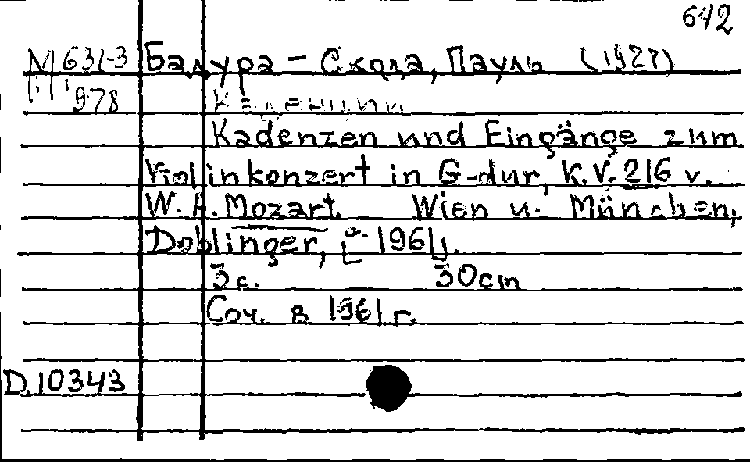 642
М 631-3 Бадура-Скода, Пауль (1927)
978 Каденции
Kadenzen und Eingänge zum
Violinkonzert in G-dur, K.V. 216 v.
W. A. Mozart. Wien u. München,
Doblinger, 1961.
3 с. 30cm
Соч. в 1961 г.
D.10343